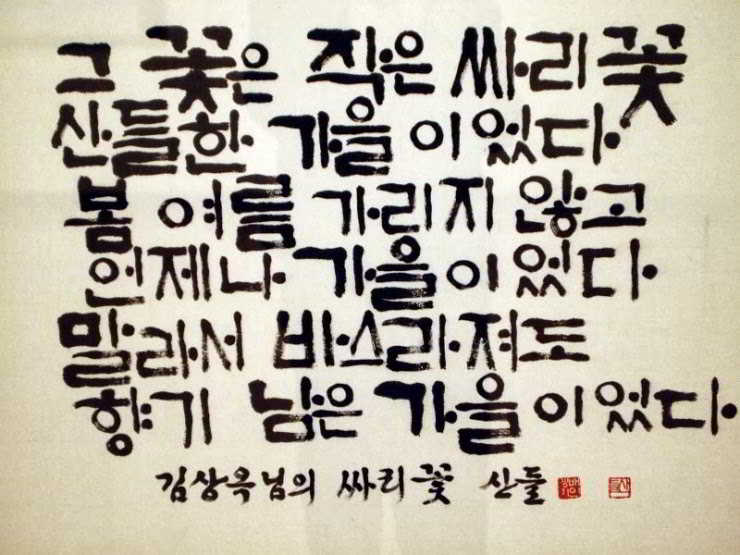 그 꽃은 작은 싸리꽃
산들한 가을이었다
봄 여름 가리지 않고
언제나 가을이었다
말라서 바스라져도
향기 남은 가을이었다
김상옥님의 싸리꽃 산돌